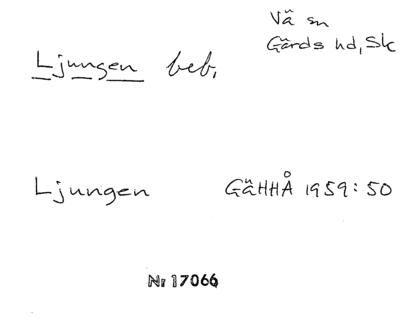 Vä sn
Gärds hd, Sk
Ljungen beb.
Ljungen GäHHÅ 1959: 50
Nr 17066